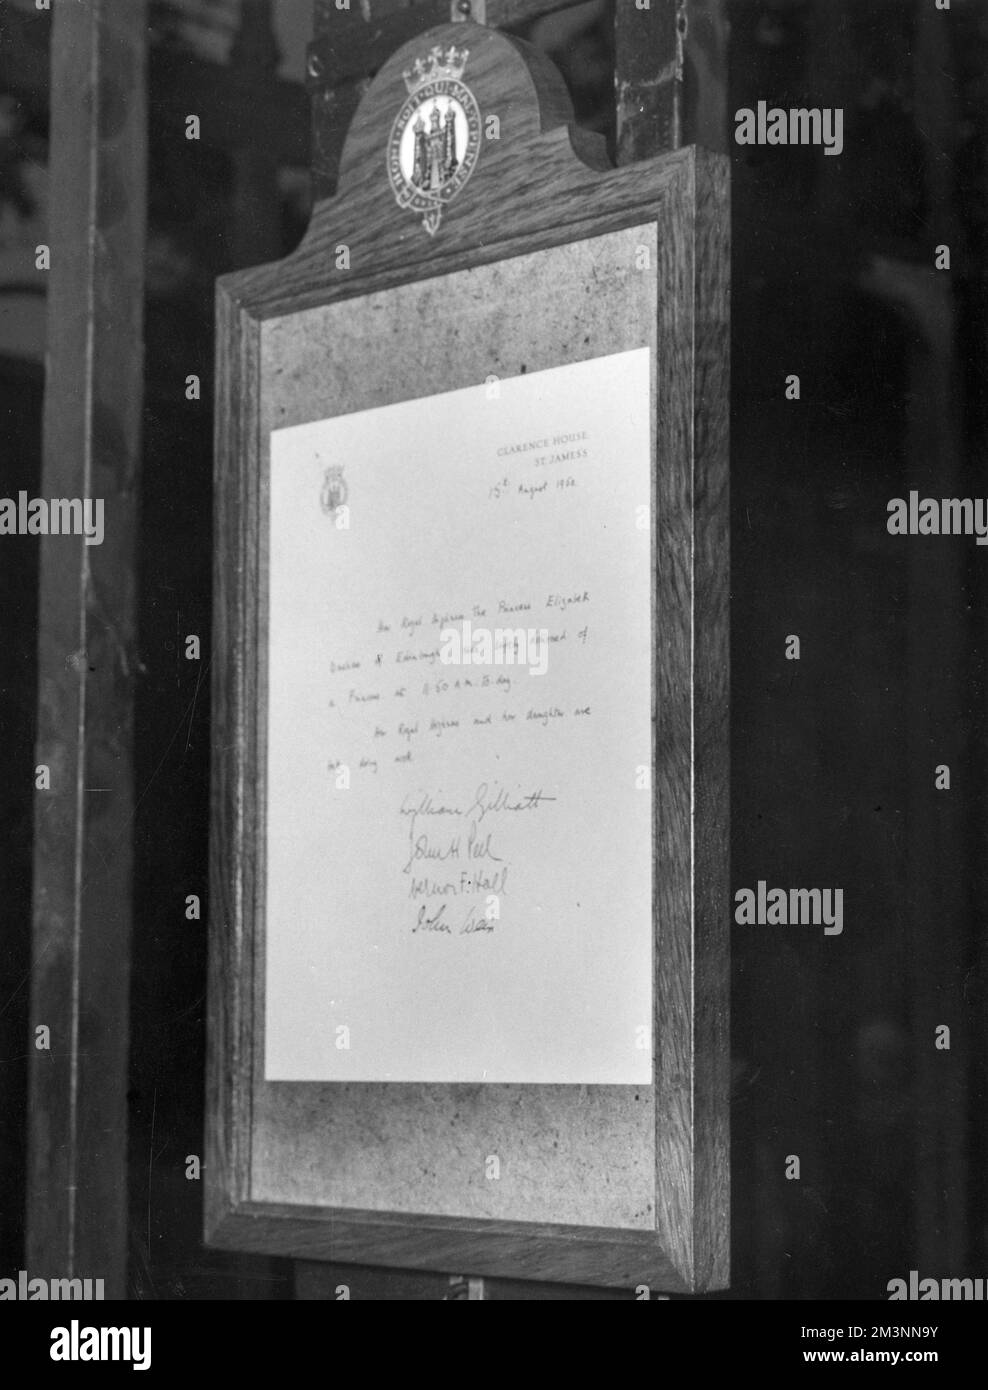 HONI SOIT QUI MAL Y PENSE
CLARENCE HOUSE
ST. JAMES'S
15th August 1950
Her Royal Highness the Princess Elizabeth
Duchess of Edinburgh was safely delivered of
a Princess at 11.50 A.M. to-day.
Her Royal Highness and her daughter are
both doing well
William Gilliatt
John H Peel
Vernon F. Hall
John Weir
alamy
a
alamy
Image ID: 2M3NN9Y
www.alamy.com